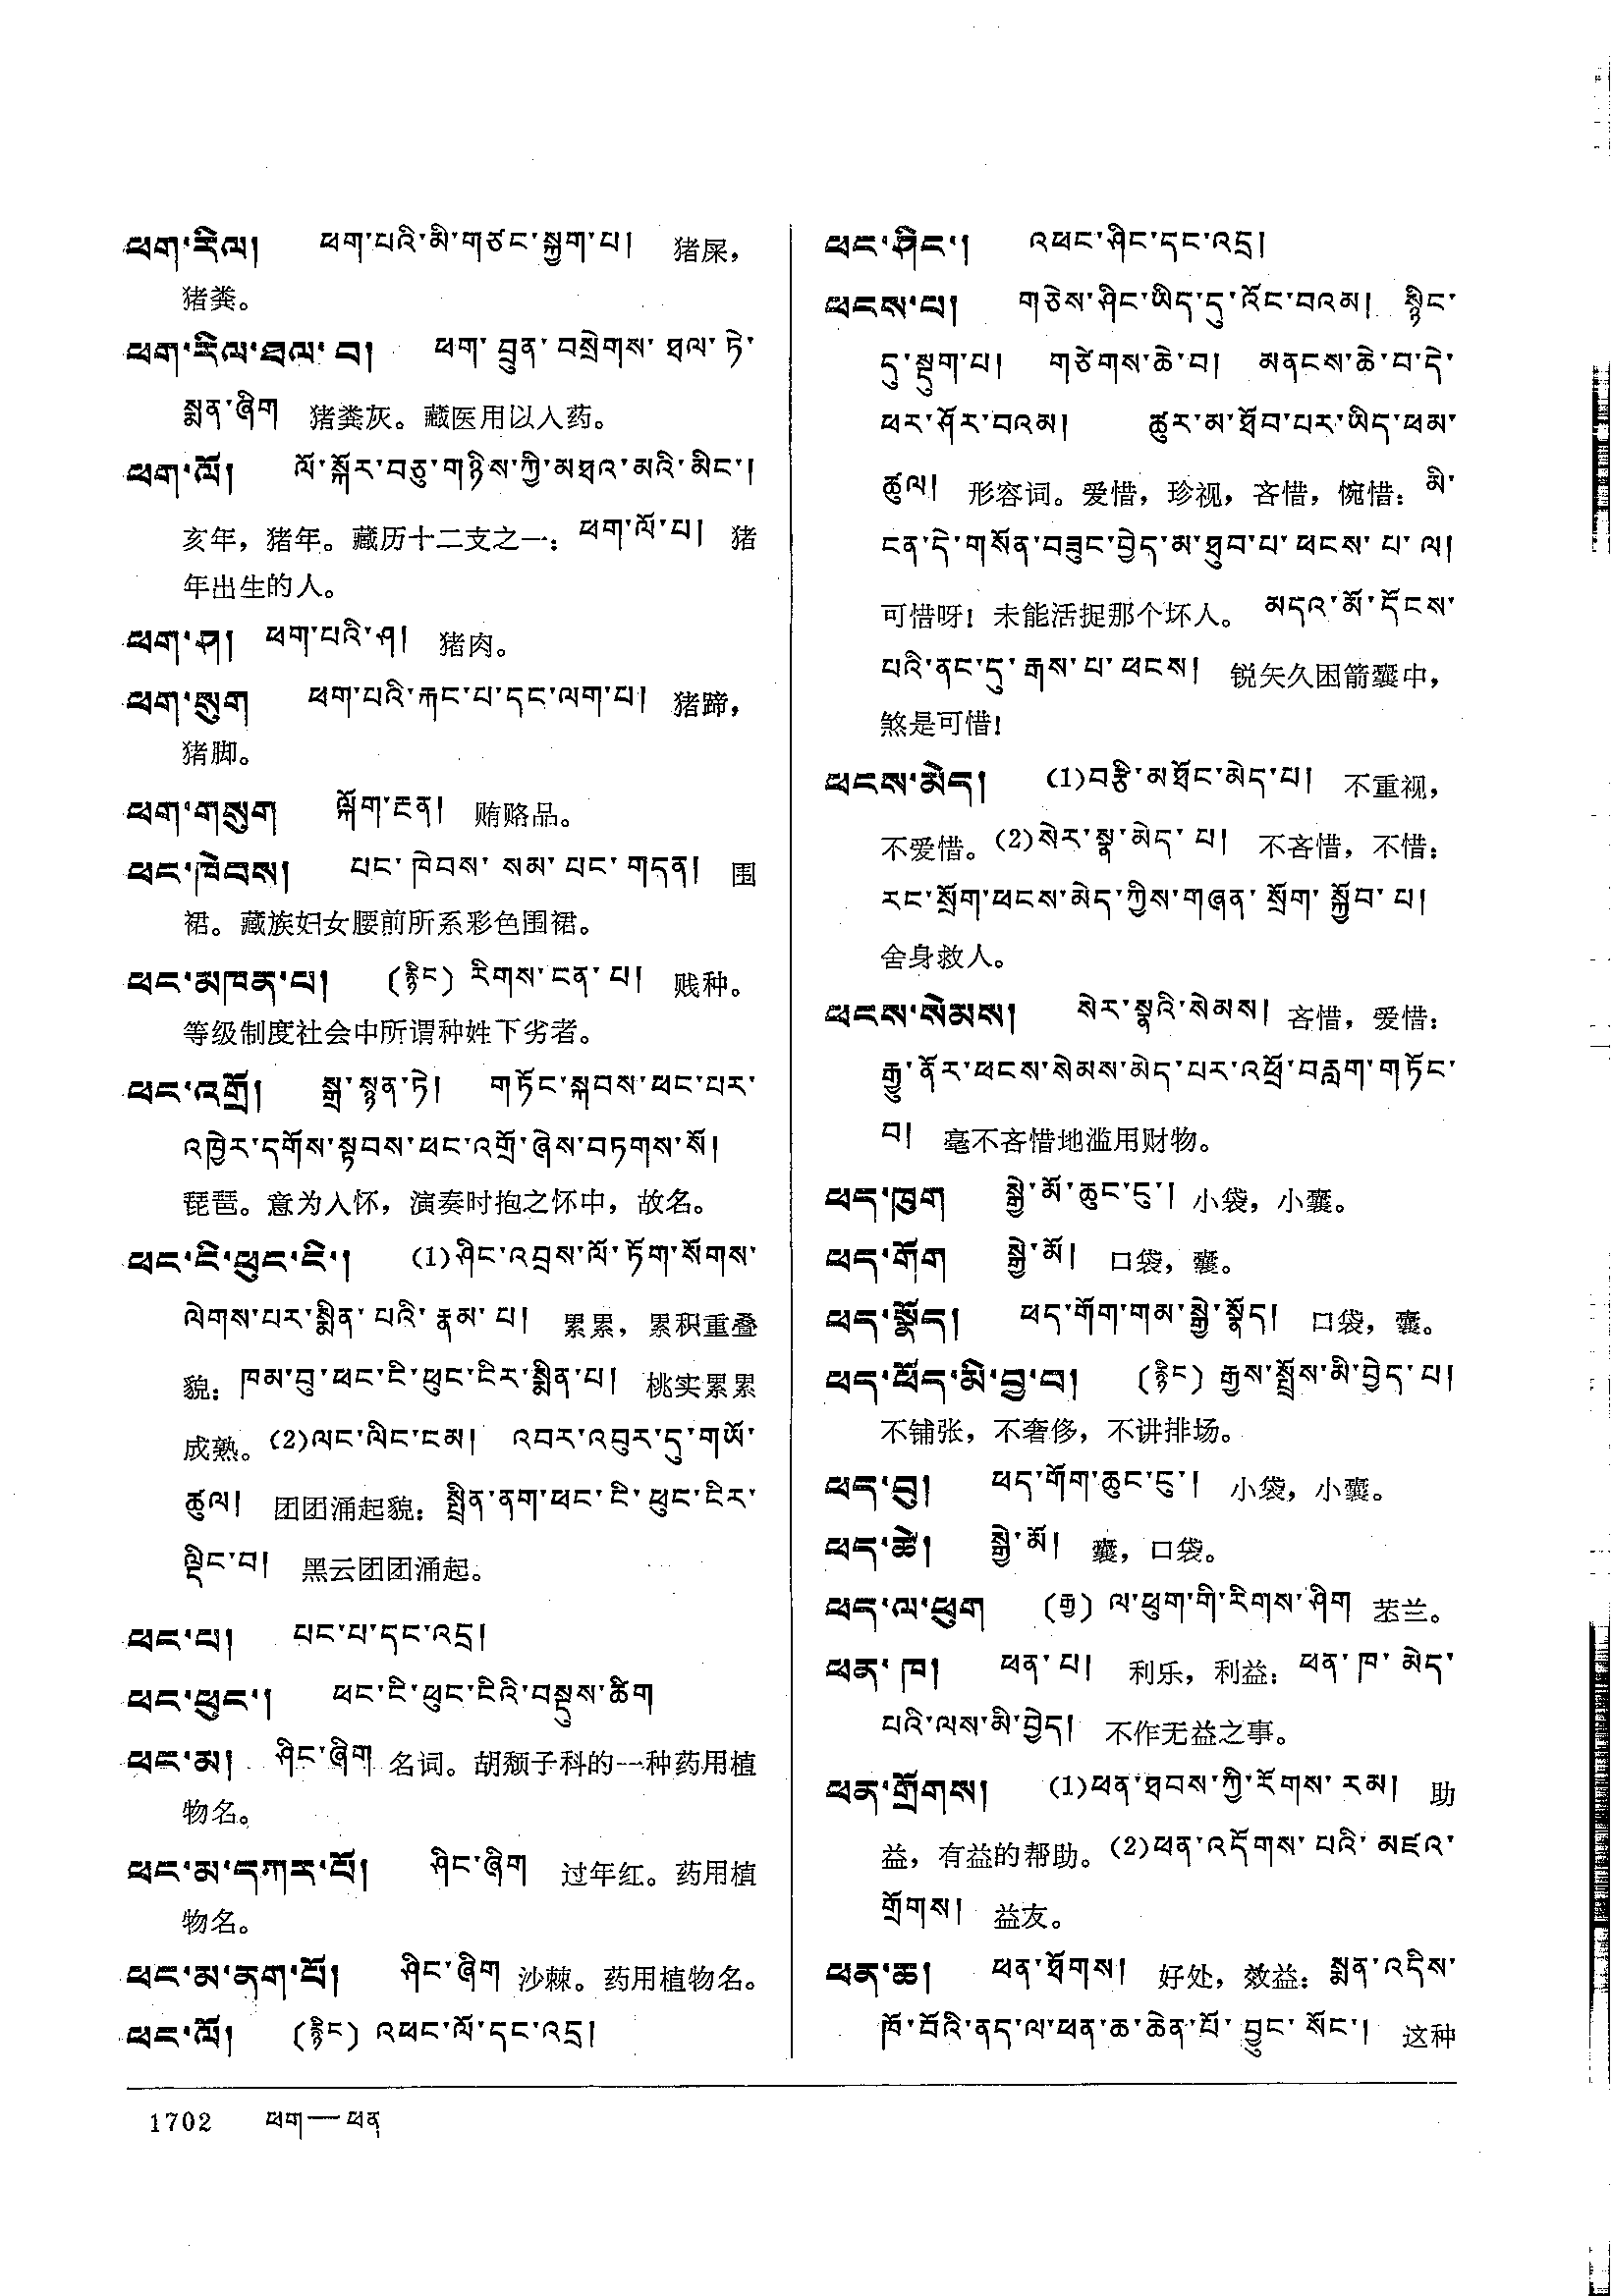 ཕག་རིལ། ཕག་པའི་མི་གཙང་སྐྱག་པ། 猪屎，
猪粪。
ཕག་རིལ་ཐལ་བ། ཕག་བྲུན་བསྲེགས་ཐལ་ཏེ་
སྨན་ཞིག 猪粪灰。藏医用以入药。
ཕག་ལོ། ལོ་སྐོར་བཅུ་གཉིས་ཀྱི་མཐའ་མའི་མིང་།
亥年，猪年。藏历十二支之一：ཕག་ལོ་པ། 猪
年出生的人。
ཕག་ཤ། ཕག་པའི་ཤ། 猪肉。
ཕག་སུག ཕག་པའི་རྐང་པ་དང་ལག་པ། 猪蹄，
猪脚。
ཕག་གསུག ལྐོག་རྔན། 贿赂品。
ཕང་ཁེབས། པང་ཁེབས་སམ་པང་གདན། 围
裙。藏族妇女腰前所系彩色围裙。
ཕང་མཁན་པ། (རྙིང) རིགས་ངན་པ། 贱种。
等级制度社会中所谓种姓下劣者。
ཕང་འགྲོ། སྒྲ་སྙན་ཏེ། གཏོང་སྐབས་ཕང་པར་
འཁྱེར་དགོས་སྟབས་ཕང་འགྲོ་ཞེས་བཏགས་སོ།
琵琶。意为入怀，演奏时抱之怀中，故名。
ཕང་ངེ་ཕུང་ངེ་། (1)ཤིང་འབྲས་ལོ་ཏོག་སོགས་
ལེགས་པར་སྨིན་པའི་རྣམ་པ། 累累，累积重叠
貌：ཁམ་བུ་ཕང་ངེ་ཕུང་ངེར་སྨིན་པ། 桃实累累
成熟。(2)ལང་ལིང་ངམ། འབར་འབུར་དུ་གཡོ་
ཚུལ། 团团涌起貌：སྤྲིན་ནག་ཕང་ངེ་ཕུང་ངེར་
ལྡིང་བ། 黑云团团涌起。
ཕང་པ། པང་པ་དང་འདྲ།
ཕང་ཕུང་། ཕང་ངེ་ཕུང་ངེའི་བསྡུས་ཚིག
ཕང་མ། ཤིང་ཞིག 名词。胡颓子科的一种药用植
物名。
ཕང་མ་དཀར་པོ། ཤིང་ཞིག 过年红。药用植
物名。
ཕང་མ་ནག་པོ། ཤིང་ཞིག 沙棘。药用植物名。
ཕང་ལོ། (རྙིང) འཕང་ལོ་དང་འདྲ།
ཕང་ཤིང་། འཕང་ཤིང་དང་འདྲ།
ཕངས་པ། གཅེས་ཤིང་ཡིད་དུ་འོང་བའམ། སྙིང་
དུ་སྡུག་པ། གཙིགས་ཆེ་བ། མནངས་ཆེ་བ་དེ་
ཕར་ཤོར་བའམ། ཚུར་མ་ཐོབ་པར་ཡིད་ཕམ་
ཚུལ། 形容词。爱惜，珍视，吝惜，惋惜：མི་
ངན་དེ་གསོན་བཟུང་བྱེད་མ་ཐུབ་པ་ཕངས་པ་ལ།
可惜呀！未能活捉那个坏人。མདའ་མོ་དོངས་
པའི་ནང་དུ་རྒས་པ་ཕངས། 锐矢久困箭囊中，
煞是可惜！
ཕངས་མེད། (1)བརྩི་མཐོང་མེད་པ། 不重视，
不爱惜。(2)སེར་སྣ་མེད་པ། 不吝惜，不惜：
རང་སྲོག་ཕངས་མེད་ཀྱིས་གཞན་སྲོག་སྐྱོབ་པ།
舍身救人。
ཕངས་སེམས། སེར་སྣའི་སེམས། 吝惜，爱惜：
རྒྱུ་ནོར་ཕངས་སེམས་མེད་པར་འཕྲོ་བརླག་གཏོང་
བ། 毫不吝惜地滥用财物。
ཕད་ཁུག སྒྱེ་མོ་ཆུང་ངུ་། 小袋，小囊。
ཕད་གོག སྒྱེ་མོ། 口袋，囊。
ཕད་སྣོད། ཕད་གོག་གམ་སྒྱེ་སྣོད། 口袋，囊。
ཕད་ཕོད་མི་བྱ་བ། (རྙིང) རྒྱས་སྤྲོས་མི་བྱེད་པ།
不铺张，不奢侈，不讲排场。
ཕད་བུ། ཕད་གོག་ཆུང་ངུ་། 小袋，小囊。
ཕད་ཚེ། སྒྱེ་མོ། 囊，口袋。
ཕད་ལ་ཕུག (རྒྱ) ལ་ཕུག་གི་རིགས་ཤིག 苤兰。
ཕན་ཁ། ཕན་པ། 利乐，利益：ཕན་ཁ་མེད་
པའི་ལས་མི་བྱེད། 不作无益之事。
ཕན་གྲོགས། (1)ཕན་ཐབས་ཀྱི་རོགས་རམ། 助
益，有益的帮助。(2)ཕན་འདོགས་པའི་མཛའ་
གྲོགས། 益友。
ཕན་ཆ། ཕན་ཐོགས། 好处，效益：སྨན་འདིས་
ཁོ་བོའི་ནད་ལ་ཕན་ཆ་ཆེན་པོ་བྱུང་སོང་། 这种
1702 ཕག—ཕན